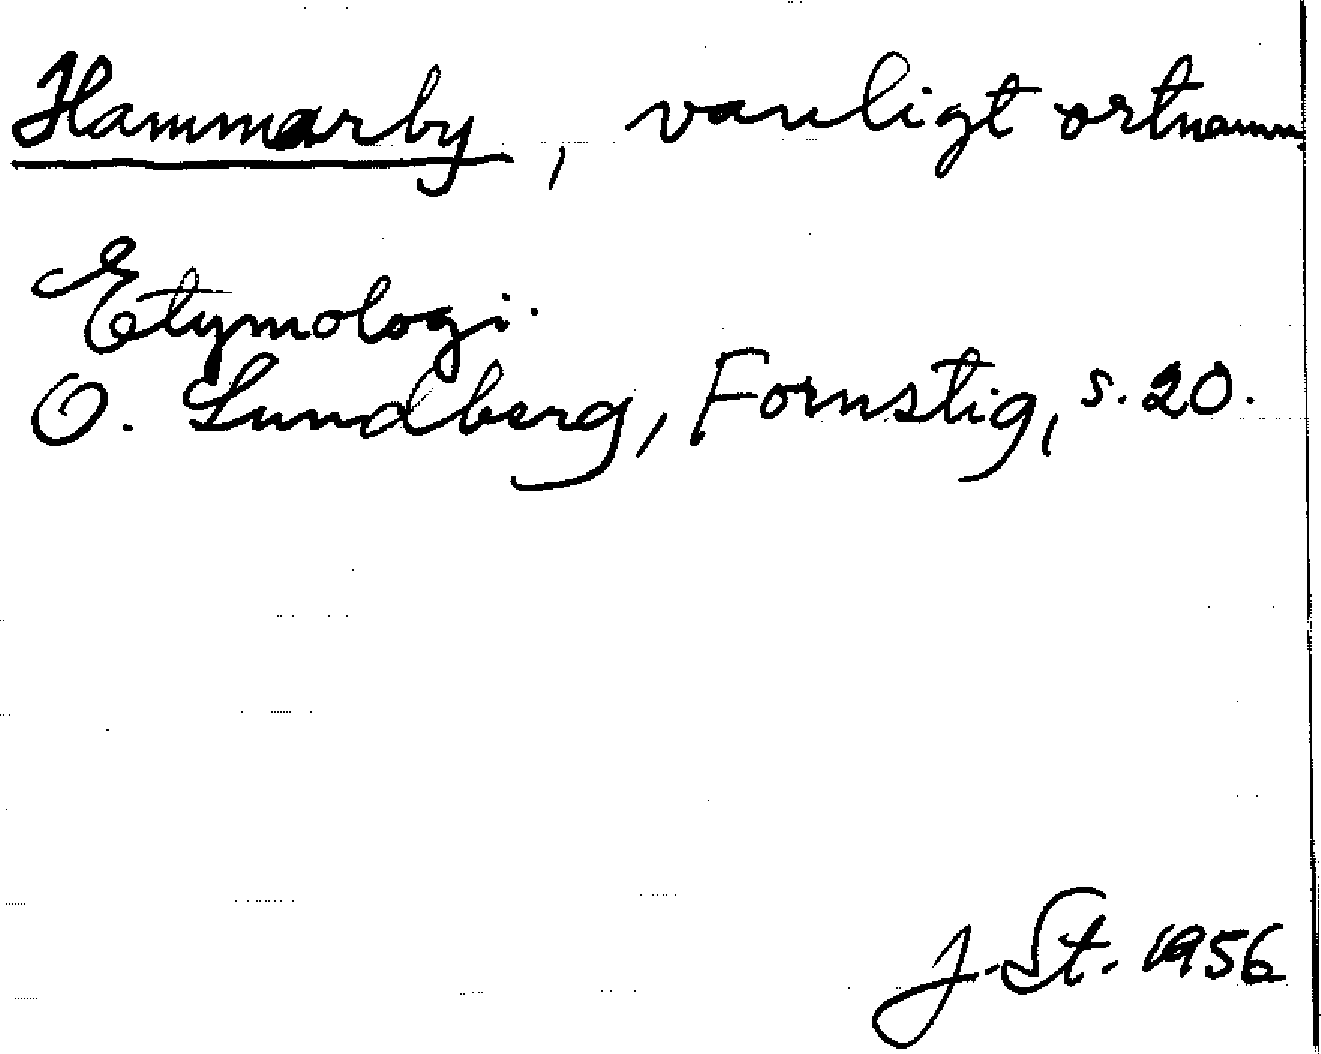 Hammarby, vanligt ortnamn
Etymologi.
O. Lundberg, Fornstig, s. 20.
J. St. 1956